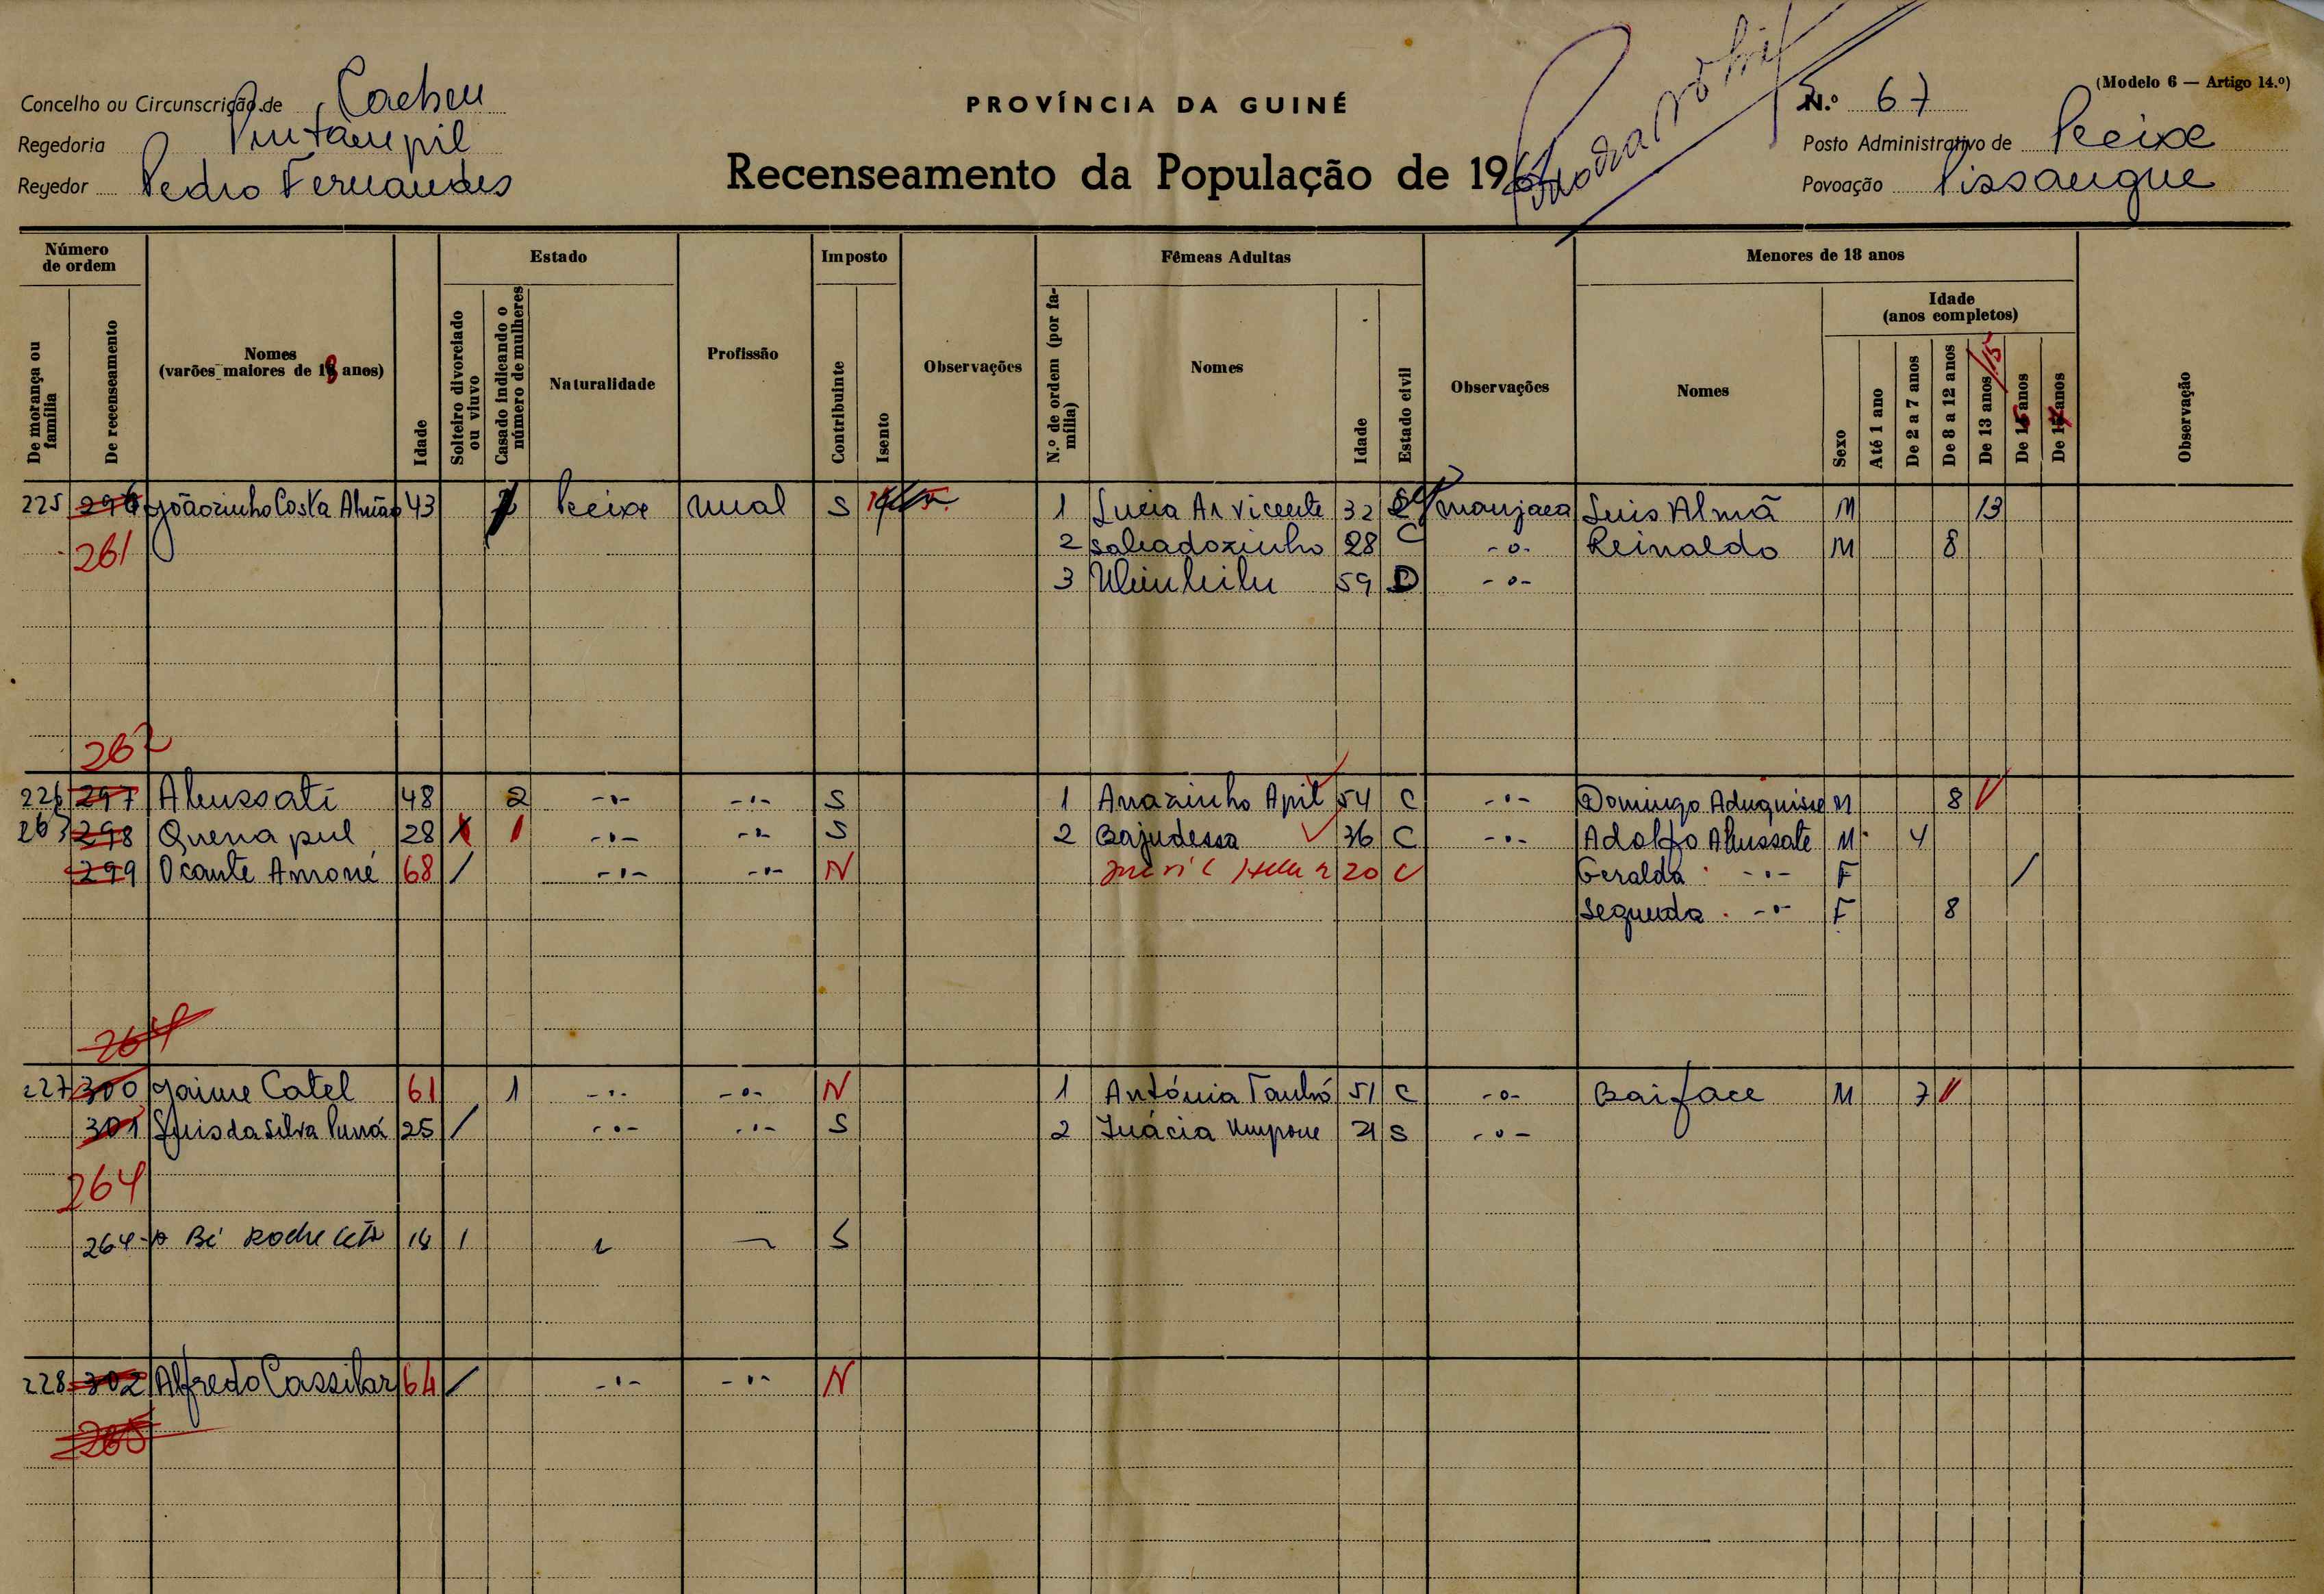 Concelho ou Circunscrição de Cacheu
Regedoria
Regedor Pedro Fernandes
PROVÍNCIA DA GUINÉ
Recenseamento da População de 196
(Modelo 6 — Artigo 14.º)
N.º 67
Posto Administrativo de Peixe
Povoação Pissangue
Número de ordem
De morança ou família
De recenseamento
Nomes (varões maiores de 18 anos)
Idade
Estado
Solteiro divorciado ou viuvo
Casado indicando o número de mulheres
Naturalidade
Profissão
Imposto
Contribuinte
Isento
Observações
Fêmeas Adultas
N.º de ordem (por família)
Nomes
Idade
Estado civil
Observações
Menores de 18 anos
Nomes
Sexo
Idade (anos completos)
Até 1 ano
De 2 a 7 anos
De 8 a 12 anos
De 13 anos /15
De 15 anos
De 17 anos
Observação
225 296 Joãozinho Costa 43 Peixe rural S 1 Lucia 32 manjaca Luis Almã M 13
261 2 Salvadozinho 28 C -o- Reinaldo M 8
3 59 D -o-
262
226 297 Alussati 48 2 -o- -o- S 1 Anazinho April 54 C -o- Domingo M 8
263 298 Quena pul 28 1 -o- -o- S 2 Bajudessa 36 C -o- Adolfo Alussate M 4
299 Ocante Amoné 68 / -o- -o- N 20 C Geralda -o- F /
Segunda -o- F 8
264
227 300 Jaime Catel 61 1 -o- -o- N 1 Antónia 51 C -o- Baiface M 7
301 Luis da Silva Puná 25 / -o- -o- S 2 Inácia 21 S -o-
264
264 Bé 18 / S
228 302 Alfredo Cassilar 64 / -o- -o- N
265